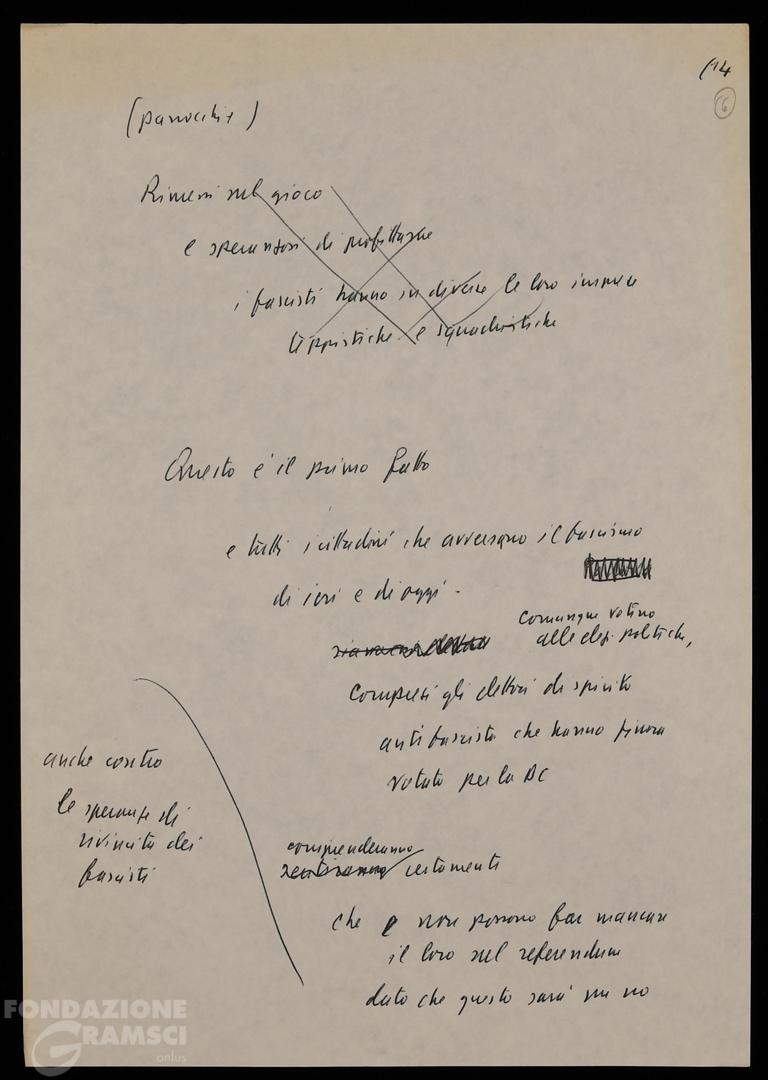 (14
6
(parrocchie)
Rimessi nel gioco
e speranzosi di profittarne
i fascisti hanno su diverse le loro imprese
teppistiche e squadristiche
Questo è il primo fatto
e tutti i cittadini che avversano il fascismo
di ieri e di oggi -
comunque votino
alle elez. politiche,
compresi gli elettori di spirito
antifascista che hanno finora
votato per la DC
anche contro
le speranze di
rivincita dei
fascisti
comprenderanno
sentiranno certamente
che non possono far mancare
il loro nel referendum
dato che questo sarà un no
FONDAZIONE
GRAMSCI
onlus